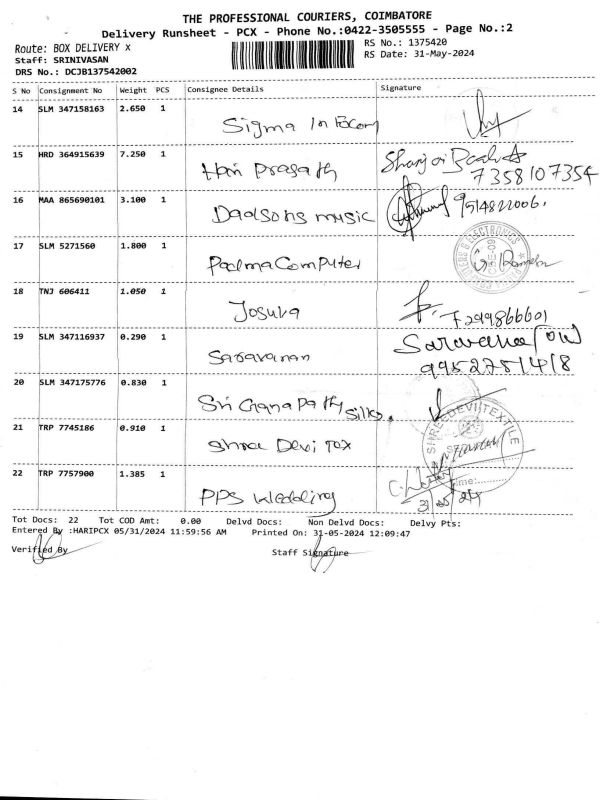 THE PROFESSIONAL COURIERS, COIMBATORE
Delivery Runsheet - PCX - Phone No.:0422-3505555 - Page No.:2
Route: BOX DELIVERY x
RS No.: 1375420
Staff: SRINIVASAN
RS Date: 31-May-2024
DRS No.: DCJB137542002
S No Consignment No Weight PCS Consignee Details Signature
14 SLM 347158163 2.650 1 Sigma In Ecom
15 HRD 364915639 7.250 1 Hari Prasath
7358107354
16 MAA 865690101 3.100 1 Dadsons music 9514822006.
17 SLM 5271560 1.800 1 Padma Computer
18 TNJ 606411 1.050 1 Josuva
7299866601
19 SLM 347116937 0.290 1 Saravanan
20 SLM 347175776 0.830 1 Sri Ganapathy Silks.
21 TRP 7745186 0.910 1 Shree Devi Tex SHREE DEVI TEXTILE
22 TRP 7757900 1.385 1 PPS Wedding
Tot Docs: 22 Tot COD Amt: 0.00 Delvd Docs: Non Delvd Docs: Delvy Pts:
Entered By :HARIPCX 05/31/2024 11:59:56 AM Printed On: 31-05-2024 12:09:47
Verified By Staff Signature